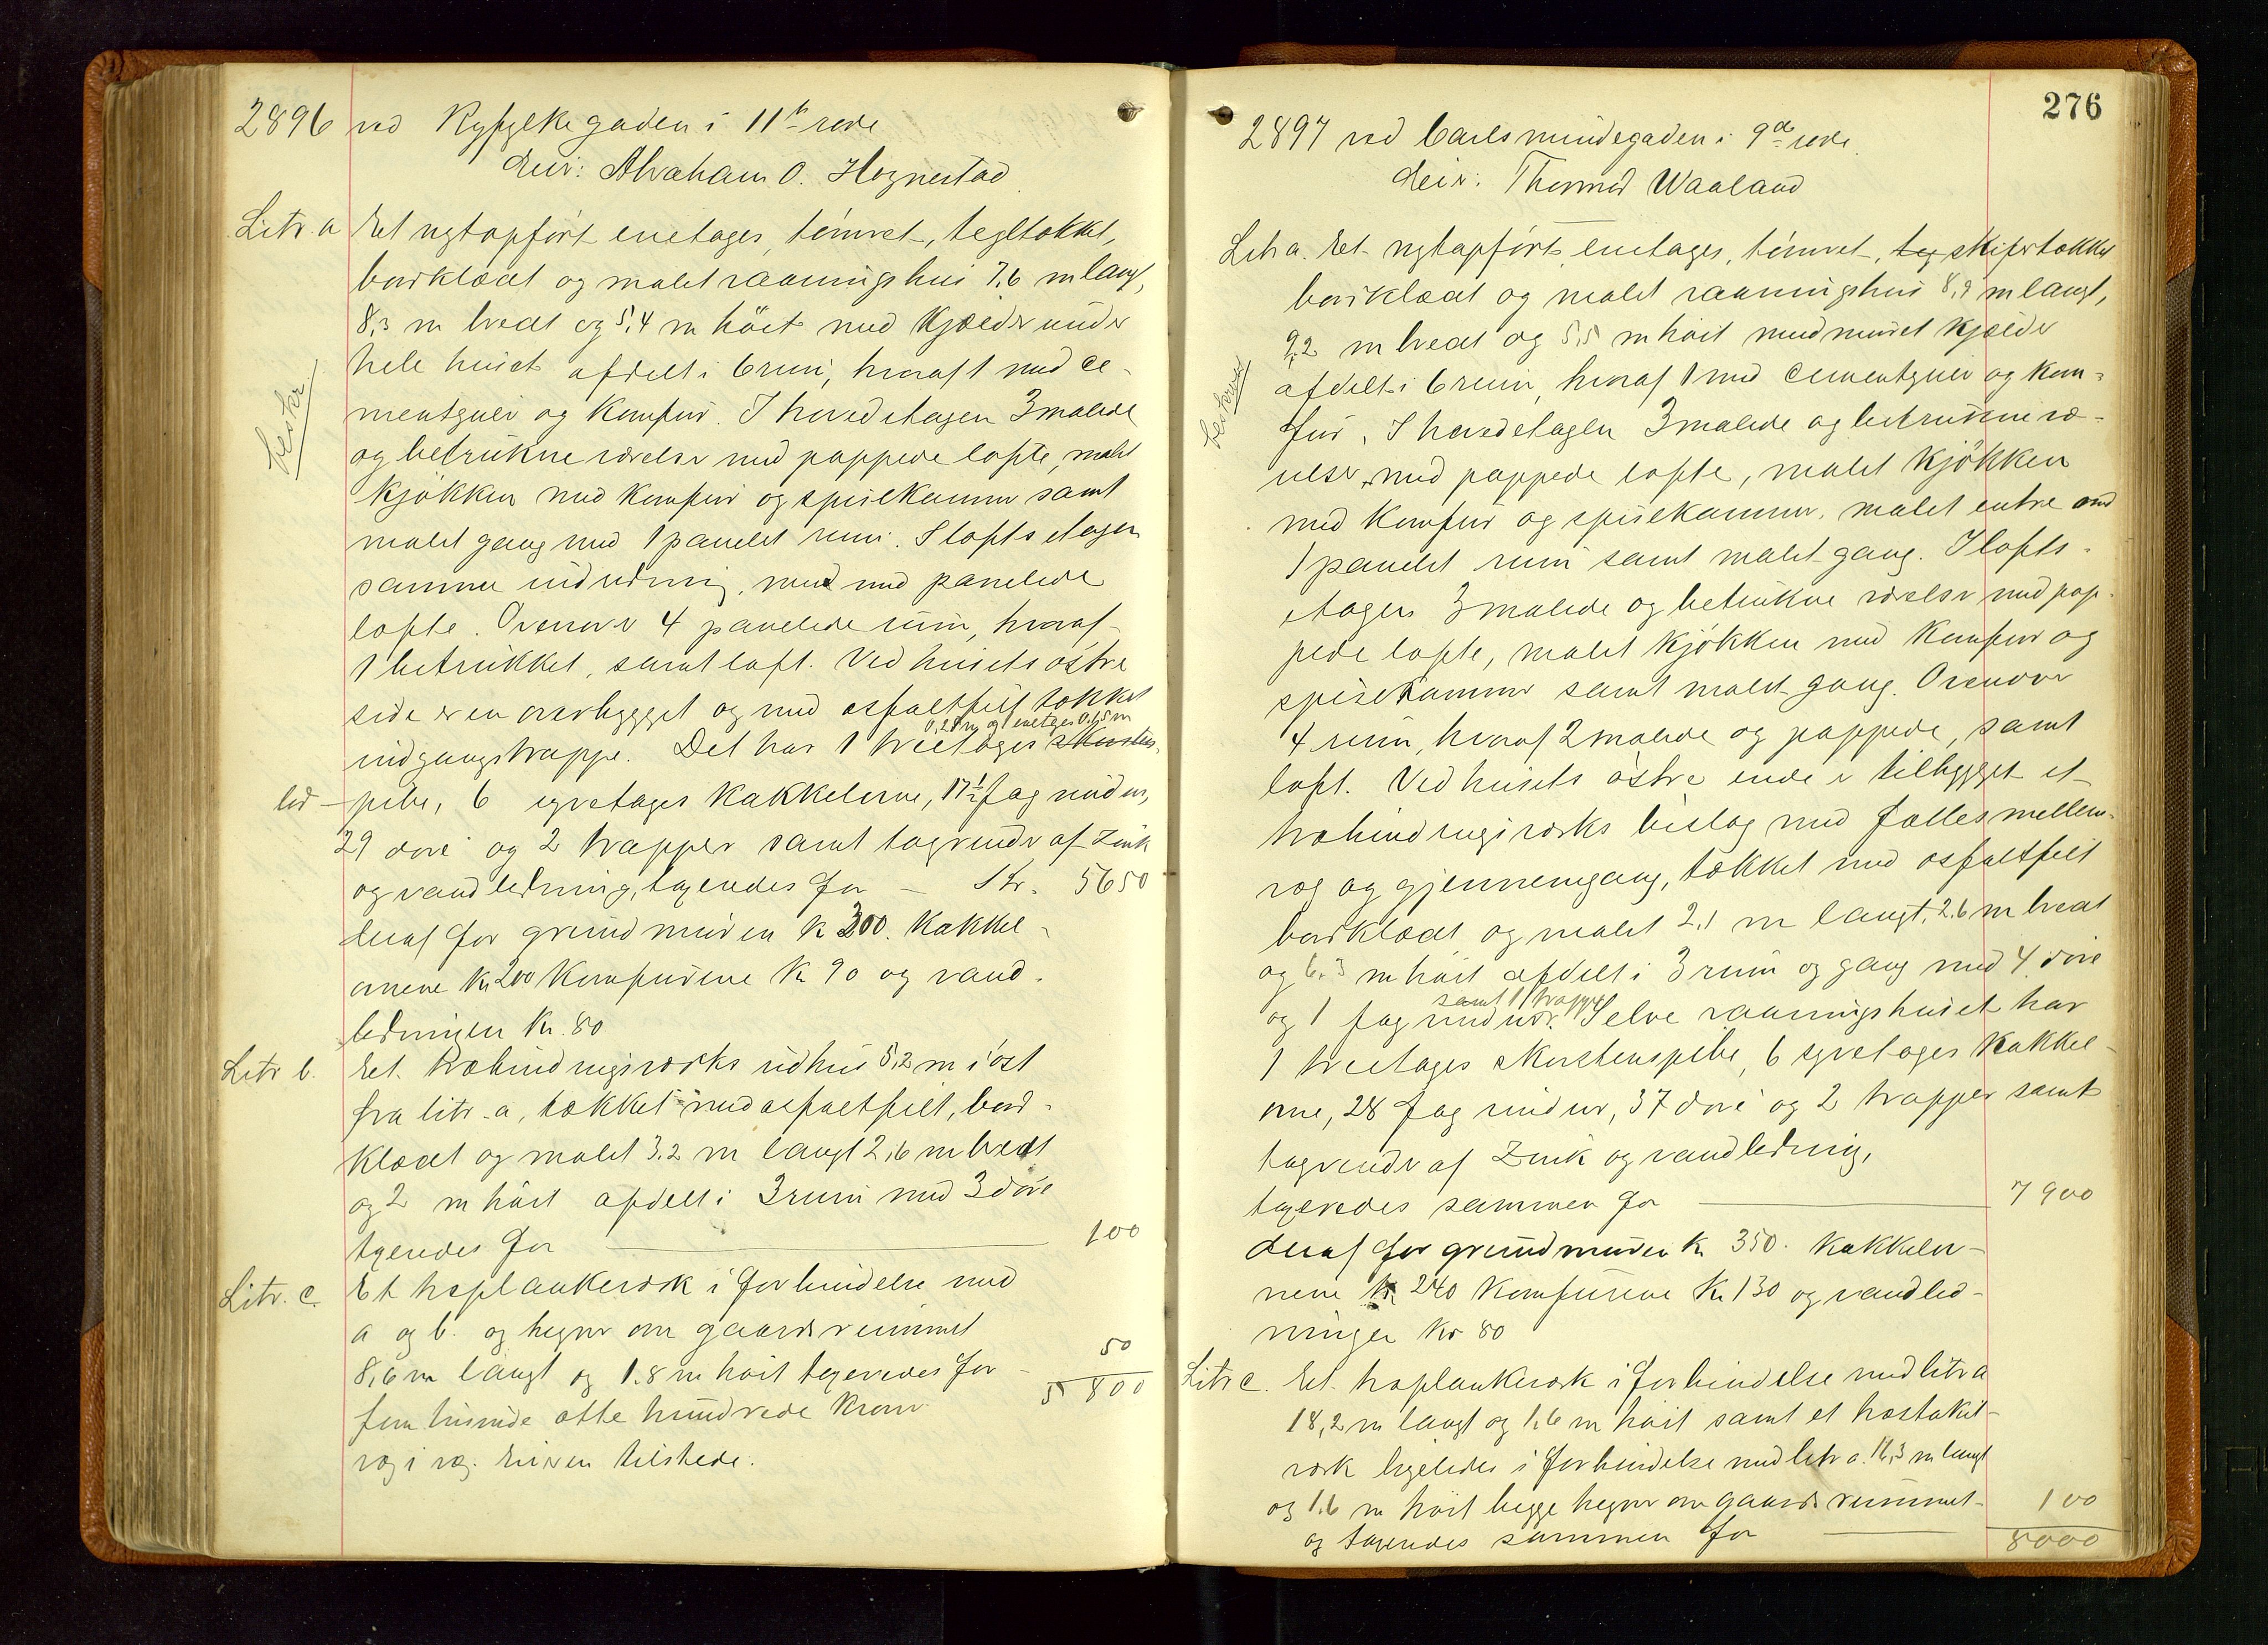 2896 ved Ryfylkegaden i 11te rode
Eier: Abraham O. Hognestad
Litr. a Et nytopført enetages, tømret, tegltækket,
bordklædt og malet vaaningshus 7,6 m langt,
8,3 m bredt og 5,4 m höit med Kjælder under
hele huset afdelt i 6 rum, hvoraf 1 med ce-
mentgulv og Komfur. I hovedetagen 3 malede
og betrukne værelser med pappede lofte, malet
Kjøkken med Komfur og spisekammer samt
malet gang med 1 panelet rum. I loftsetagen
samme indredning, med panelede
lofte. Ovenover 4 panelede rum, hvoraf
1 betrukket, samt loft. Ved husets østre
side er en overbygget og med asfaltfilt tækket
0,28 m og 1 enetages 0.65 m
indgangstrappe. Det har 1 treetages skorstens-
pibe, 6 syvetages Kakkelovne, 17 1/2 fag vinduer,
29 døre og 2 trapper samt tagrender af zink
og vandledning, taxeredes for – Kr. 5650
deraf for grundmuren K 300. Kakkel-
ovnene Kr 200 Komfurene K 90 og vand-
ledningen Kr. 80
Litr b. Et træbindingsværks udhus 5,2 m i øst
fra litr. a, tækket med asfaltfilt, bord-
klædt og malet 3.2 m langt 2,6 m bredt
og 2 m høit afdelt i 3 rum med 3 døre
taxeredes for 100
Litr. c. Et træplankeværk i forbindelse med
a og b. og hegner om gaardsrummet
8,6 m langt og 1.8 m høit taxeredes for 50
5800
fem tusinde otte hundrede Kroner
Eieren tilstede.
276
2897 ved Carlsmindegaden i 9de rode.
Eier: Thomas Waaland
Litr a. Et nytopført enetages, tømret, teg skifertækket
bordklædt og malet vaaningshus 8,9 m langt,
9,2 m bredt og 5,5 m høit med muret kjælder
afdelt i 6 rum, hvoraf 1 med cementgulv og kom-
fur. I hovedetagen 3 malede og betrukne væ-
relser med pappede lofte, malet Kjøkken
med Komfur og spisekammer, malet entre med
1 panelet rum samt malet gang. I lofts-
etagen 3 malede og betrukne værelser med pap-
pede lofte, malet Kjøkken med Komfur og
spisekammer samt malet gang. Ovenover
4 rum, hvoraf 2 malede og pappede, samt
loft. Ved husets østre ende er tilbygget et
træbindingsværks bislag med fælles mellem-
væg og gjennemgang, tækket med asfaltfilt
bordklædt og malet 2,1 m langt, 2.6 m bredt
og 6.3 m høit afdelt i 3 rum og gang med 4 døre
samt 1 trappe
og 1 fag vinduer. Selve vaaningshuset har
1 treetages skorstenspibe, 6 syvetages Kakkel-
ovne, 28 fag vinduer, 37 døre og 2 trapper samt
tagrender af Zink og vandledning,
taxeredes sammen for 7900
deraf for grundmuren K 350. Kakkelov-
nene Kr 240 Komfurene K. 130 og vandled-
ningen Kr 80
Litr c. Et træplankeværk i forbindelse med litr a
18,2 m langt og 1,6 m høit samt et træstakit-
værk ligeledes i forbindelse med litr a. 12,3 m langt
og 1.6 m høit begge hegner om gaardsrummet 100
og taxeredes sammen for 8000